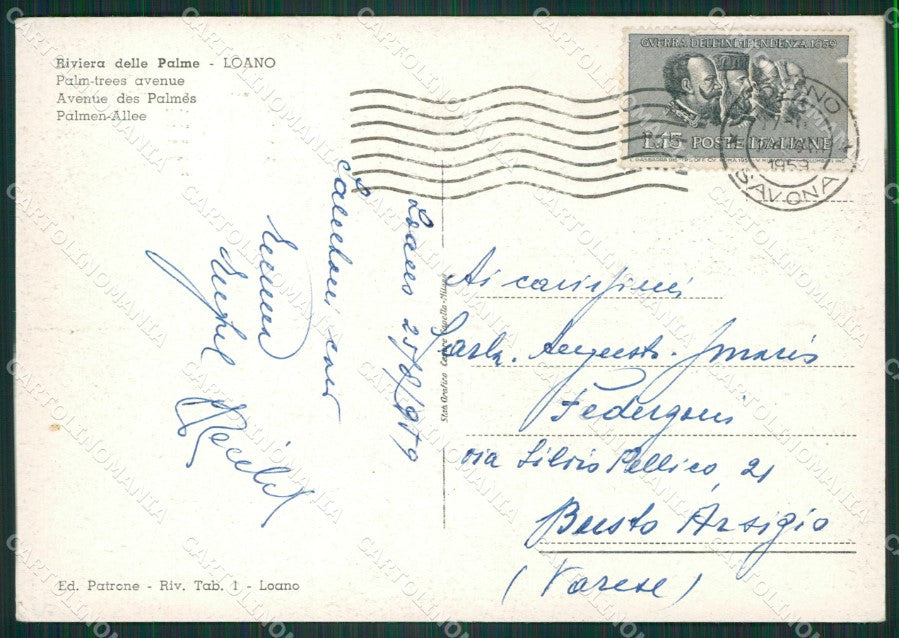 Riviera delle Palme - LOANO
Palm-trees avenue
Avenue des Palmés
Palmen-Allee
GUERRA DELL'INDIPENDENZA 1859
L.15 POSTE ITALIANE
LOANO
1959
SAVONA
Loano 25/8/1959
Saluti cari
Ai carissimi
Carla. Augusto.
Federzoni
via Silvio Pellico, 21
Busto Arsizio
(Varese)
Ed. Patrone - Riv. Tab. 1 - Loano
CARTOLINOMANIA